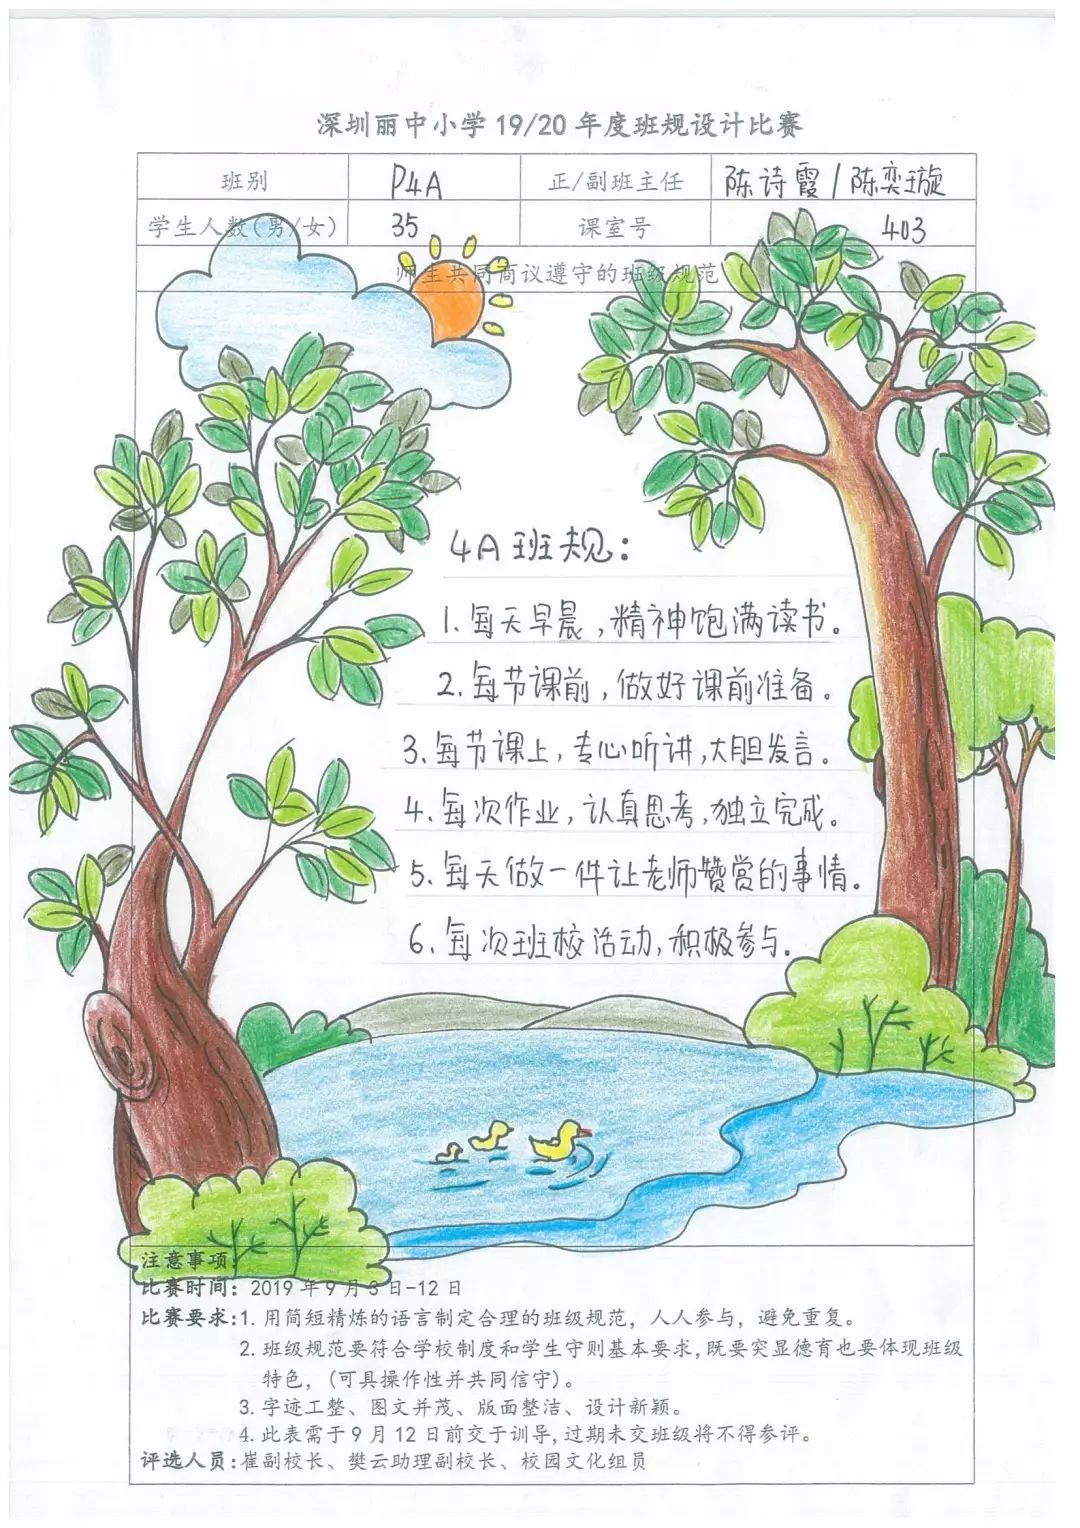 深圳丽中小学19/20年度班规设计比赛
班别 P4A 正/副班主任 陈诗霞/陈奕璇
学生人数(男/女) 35 课室号 403
师生共同商议遵守的班级规范
4A班规：
1.每天早晨,精神饱满读书。
2.每节课前,做好课前准备。
3.每节课上,专心听讲,大胆发言。
4.每次作业,认真思考,独立完成。
5.每天做一件让老师赞赏的事情。
6.每次班校活动,积极参与。
注意事项：
比赛时间：2019年9月3日-12日
比赛要求:1.用简短精炼的语言制定合理的班级规范，人人参与，避免重复。
2.班级规范要符合学校制度和学生守则基本要求,既要突显德育也要体现班级
特色，(可具操作性并共同信守)。
3.字迹工整、图文并茂、版面整洁、设计新颖。
4.此表需于9月12日前交于训导,过期未交班级将不得参评。
评选人员:崔副校长、樊云助理副校长、校园文化组员